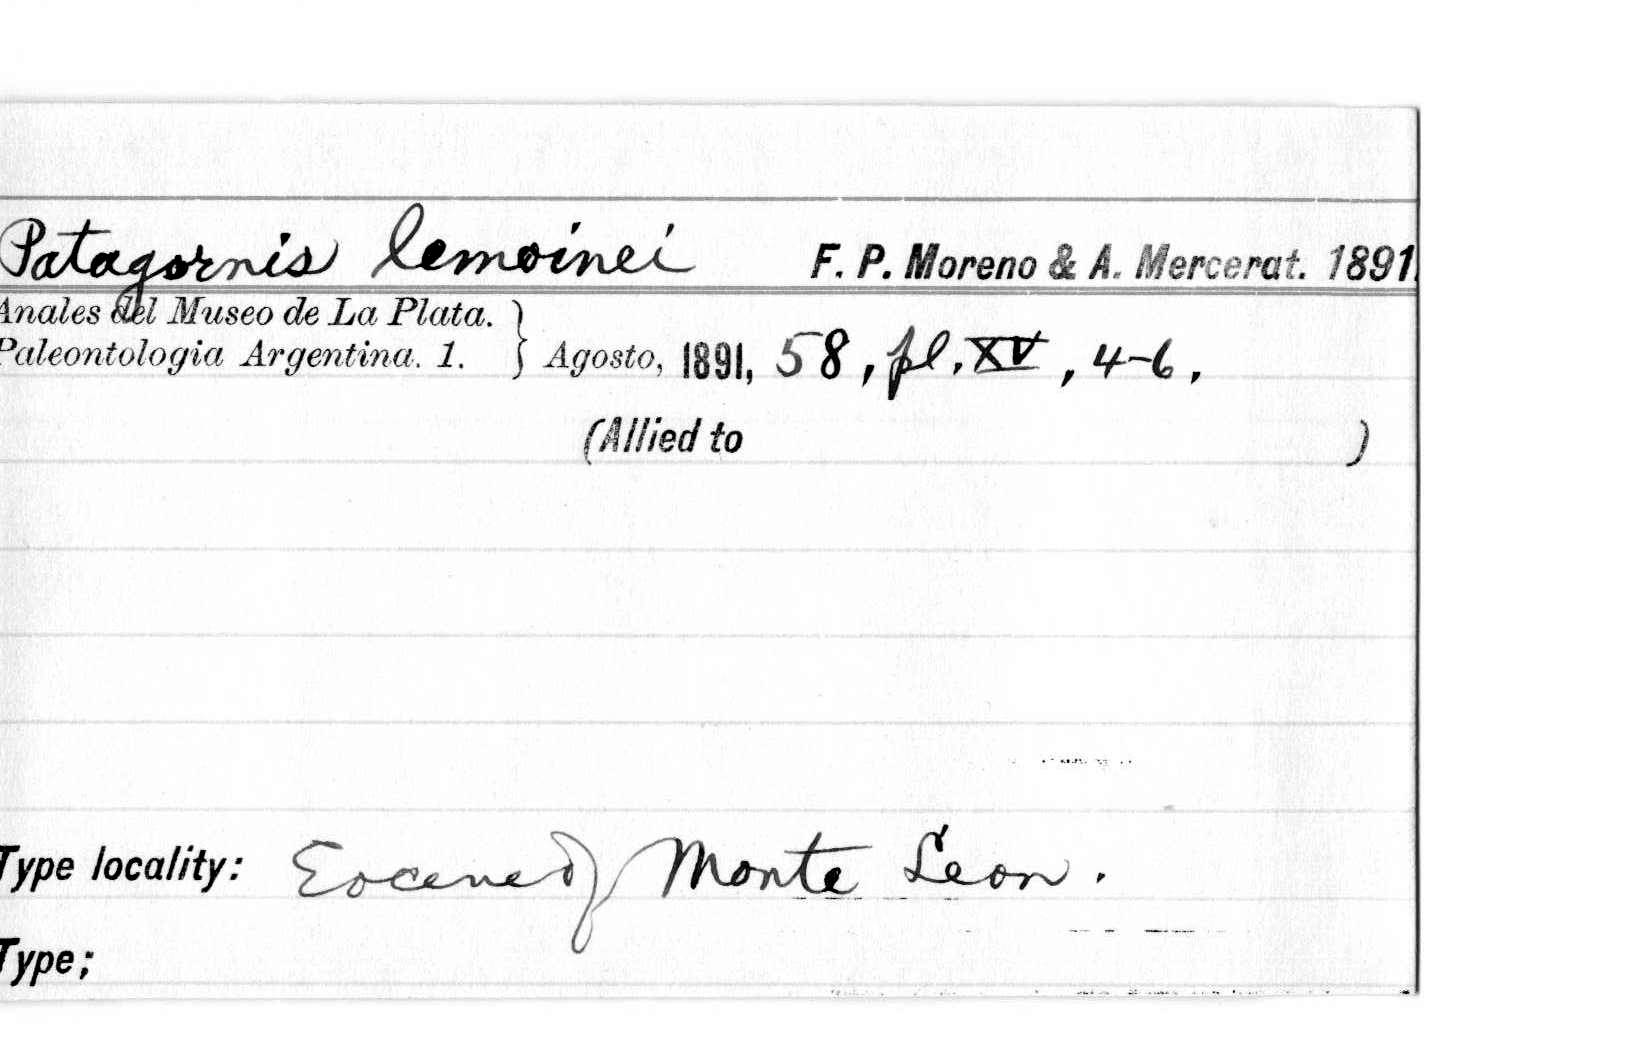 Patagornis lemoinei F. P. Moreno & A. Mercerat. 1891.
Anales del Museo de La Plata.
Paleontologia Argentina. 1. } Agosto, 1891, 58, pl. XV, 4-6.
(Allied to )
Type locality: Eocene of Monte Leon.
Type;